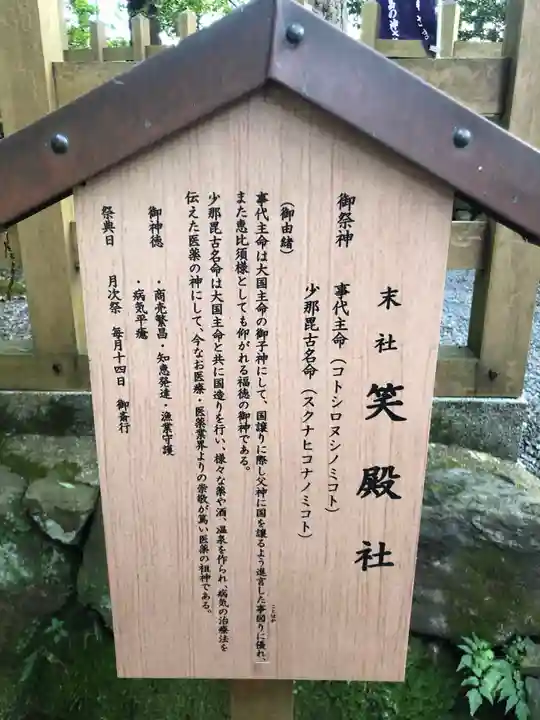 末社 笑殿社
御祭神 事代主命（コトシロヌシノミコト）
少那毘古名命（スクナヒコナノミコト）
（御由緒）
事代主命は大国主命の御子神にして、国譲りに際し父神に国を譲るよう進言した事図りに優れ、
ことはか
また恵比須様としても仰がれる福徳の御神である。
少那毘古名命は大国主命と共に国造りを行い、様々な薬や酒、温泉を作られ、病気の治療法を
伝えた医薬の神にして、今なお医療・医薬業界よりの崇敬が篤い医薬の祖神である。
御神徳 ・商売繁昌・知恵発達・漁業守護
・病気平癒
祭典日 月次祭 毎月十四日 御斎行